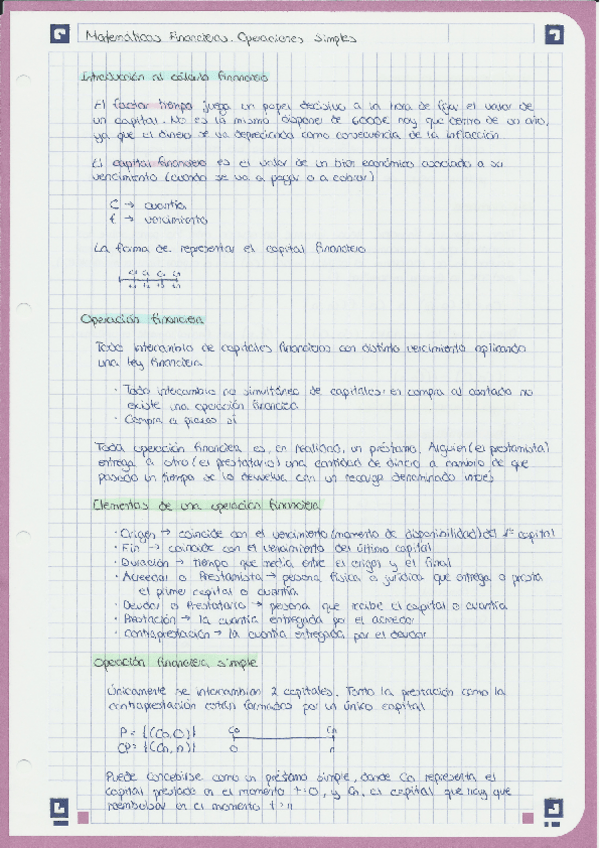 Matemáticas Financieras. Operaciones simples
Introducción al cálculo financiero
El factor tiempo juega un papel decisivo a la hora de fijar el valor de
un capital. No es lo mismo disponer de 6000€ hoy que dentro de un año,
ya que el dinero se va depreciando como consecuencia de la inflacción
El capital financiero es el valor de un bien económico asociado a su
vencimiento (cuando se va a pagar o a cobrar)
C → cuantía
t → vencimiento
La forma de representar el capital financiero
Operación financiera
Todo intercambio de capitales financieros con distinto vencimiento aplicando
una ley financiera
· Todo intercambio no simultáneo de capitales: en compra al contado no
existe una operación financiera
· Compra a plazos sí
Toda operación financiera es, en realidad, un préstamo. Alguien (el prestamista)
entrega a otro (el prestatario) una cantidad de dinero a cambio de que
pasado un tiempo se lo devuelva con un recargo denominado interés
Elementos de una operación financiera
· Origen → coincide con el vencimiento (momento de disponibilidad) del 1er capital
· Fin → coincide con el vencimiento del último capital
· Duración → tiempo que media entre el origen y el final
· Acreedor o Prestamista → persona física o jurídica que entrega o presta
el primer capital o cuantía
· Deudor o Prestatario → persona que recibe el capital o cuantía
· Prestación → la cuantía entregada por el acreedor
· Contraprestación → la cuantía entregada por el deudor
Operación financiera simple
Únicamente se intercambian 2 capitales. Tanto la prestación como la
contraprestación están formados por un único capital
P = {(C0, 0)} C0 Cn
CP = {(Cn, n)} 0 n
Puede concebirse como un préstamo simple, donde Co representa el
capital prestado en el momento t=0, y Cn, el capital que hay que
reembolsar en el momento t=n